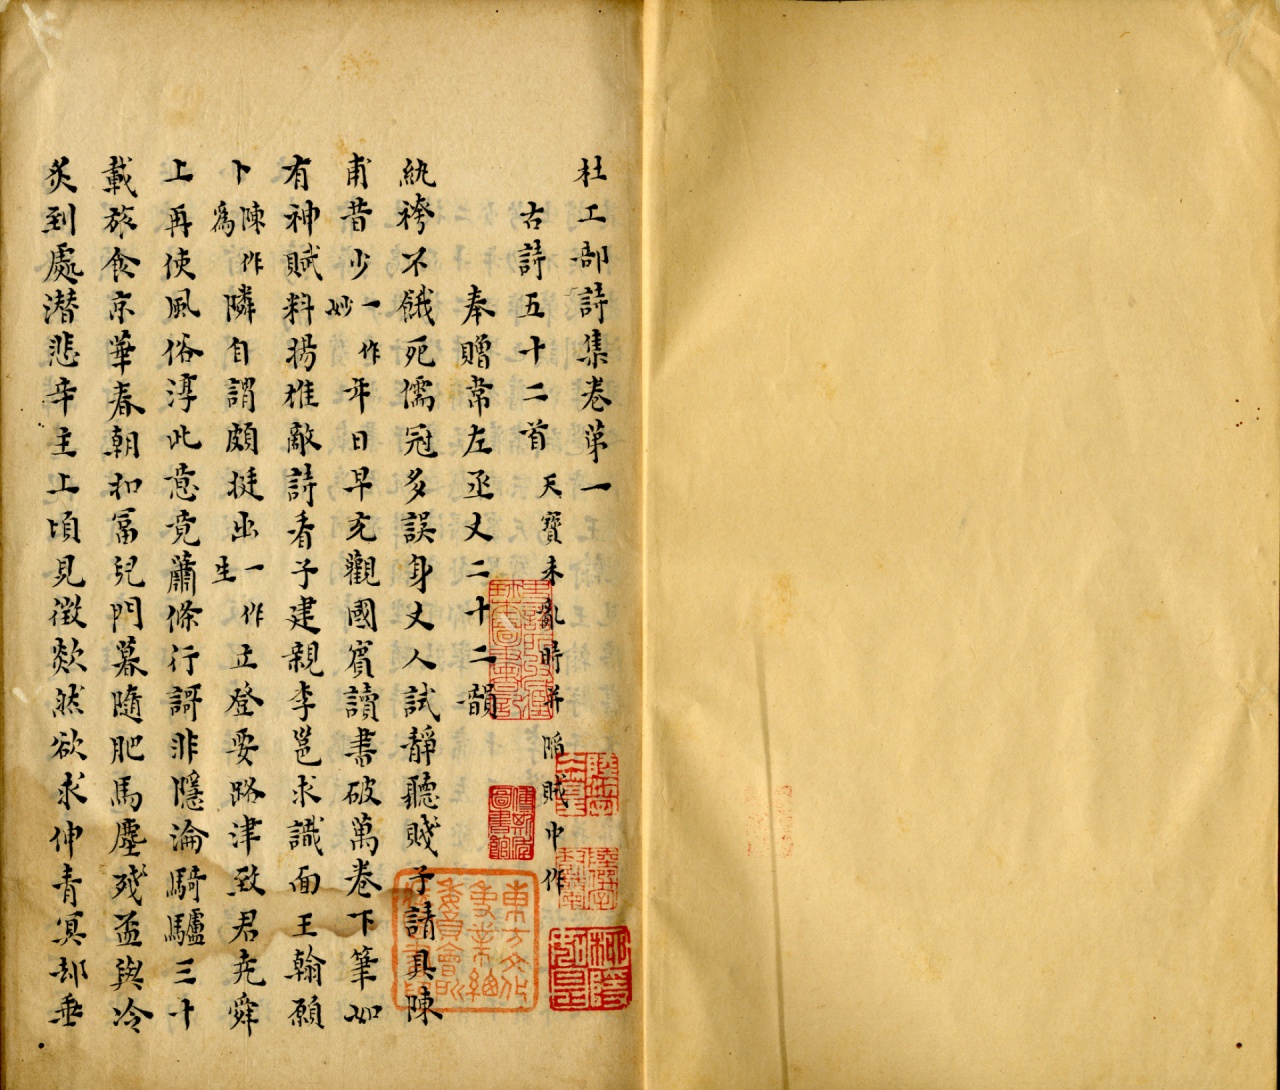 杜工部詩集卷第一
古詩五十二首 天寶未亂時并陷賊中作
奉贈常左丞丈二十二韻
紈袴不餓死儒冠多誤身丈人試靜聽賤子請具陳
甫昔少一作妙年日早充觀國賓讀書破萬卷下筆如
有神賦料揚雄敵詩看子建親李邕求識面王翰願
卜陳作爲隣自謂頗挺出一作生立登要路津致君堯舜
上再使風俗淳此意竟蕭條行謌非隱淪騎驢三十
載旅食京華春朝扣富兒門暮隨肥馬塵殘盃與冷
炙到處潛悲辛主上頃見徵歘然欲求伸青冥却垂
東方文化事業總委員會所藏圖書印
傅斯年圖書館
史語所收藏珍本圖書記